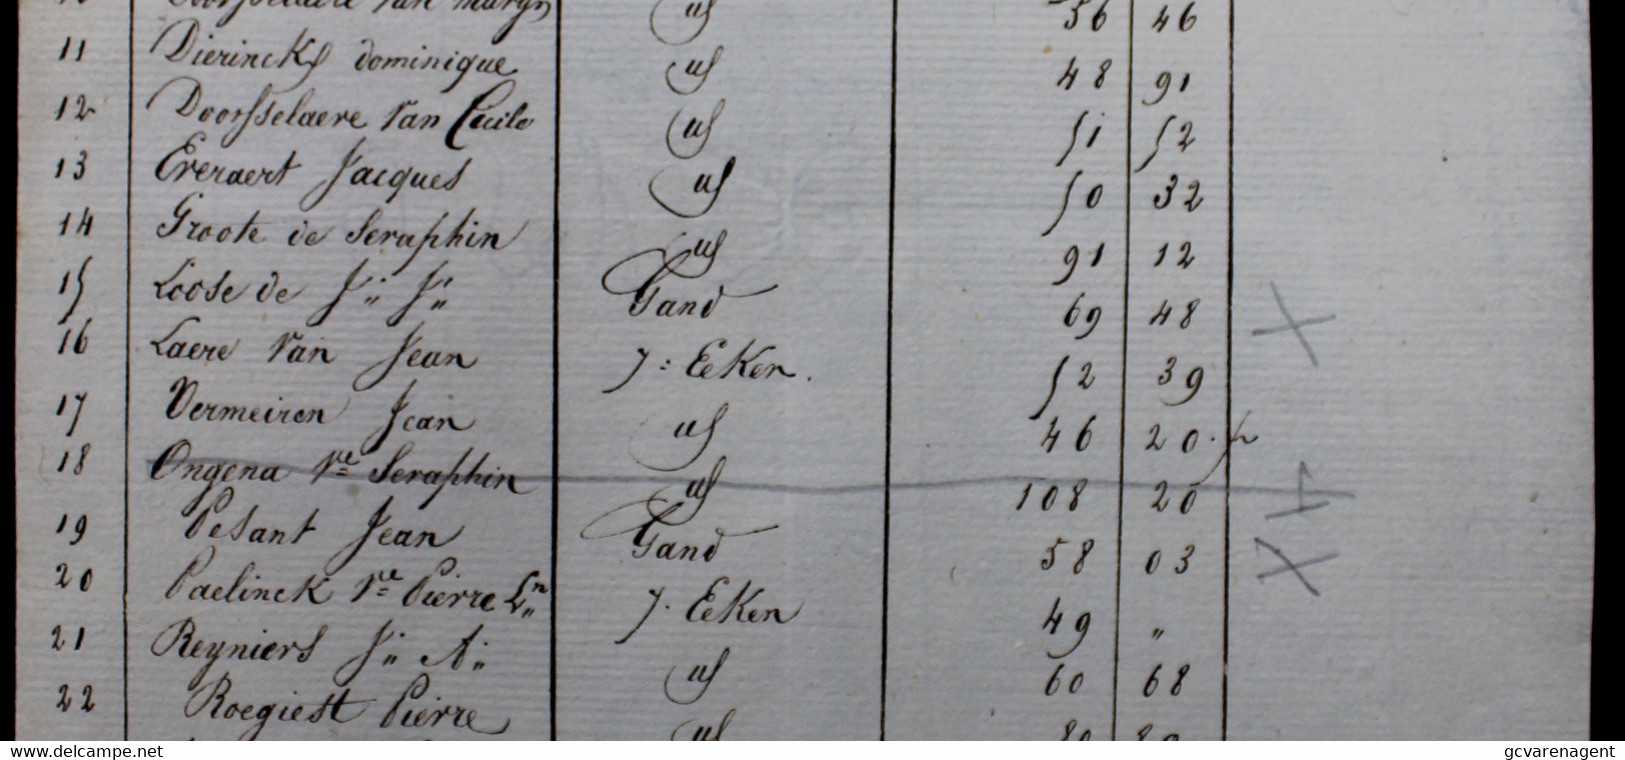 Doorsselaere Van 56 46
11 Dierinckx dominique id 48 91
12 Doorsselaere Van Cecile id 51 52
13 Everaert Jacques id 50 32
14 Groote de Seraphin id 91 12
15 Loose de J: J: Gand 69 48
16 Laere Van Jean J: EeKen. 52 39
17 Vermeiren Jean id 46 20.
18 Ongena Ve Seraphin id 108 20
19 Pesant Jean Gand 58 03
20 Paelinck Ve Pierre Ln J. EeKen 49 "
21 Reyniers J: A: id 60 68
22 Roegiest Pierre id
www.delcampe.net gcvarenagent